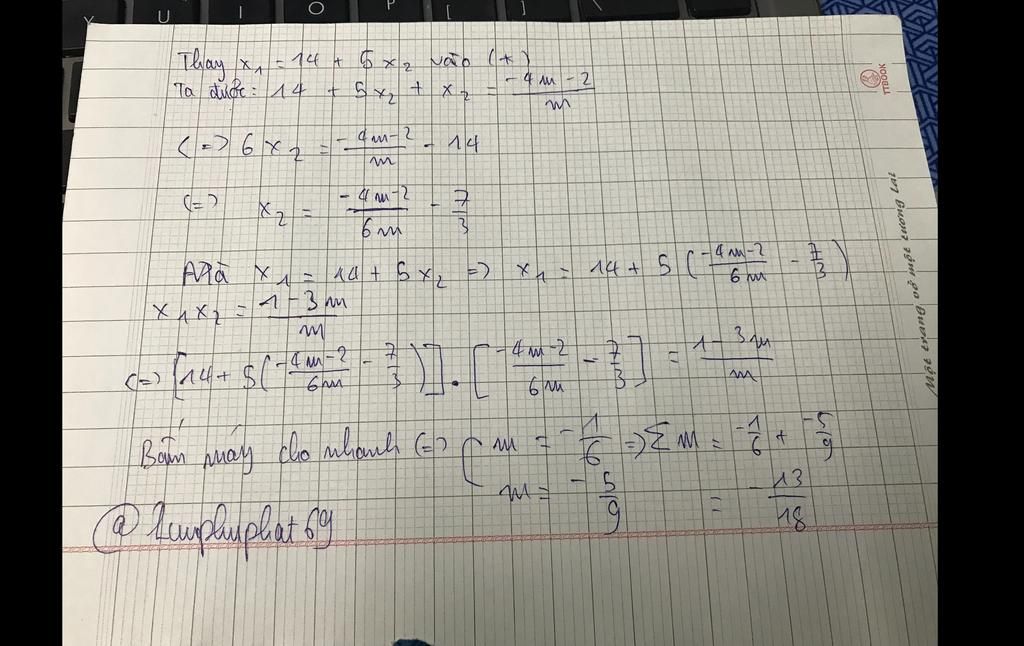 Y U I O P [ ] \
Thay x₁ = 14 + 5x₂ vào (*)
Ta được: 14 + 5x₂ + x₂ = (-4m-2)/m
TTBOOK
(=>) 6x₂ = (-4m-2)/m - 14
(=>) x₂ = (-4m-2)/(6m) - 7/3
Mà x₁ = 14 + 5x₂ => x₁ = 14 + 5((-4m-2)/(6m) - 7/3)
x₁x₂ = (1-3m)/m
(=>) [14 + 5((-4m-2)/(6m) - 7/3)] . [(-4m-2)/(6m) - 7/3] = (1-3m)/m
Bấm máy cho nhanh (=>) [ m = -1/6 => Σm = -1/6 + -5/9
m = -5/9 = -13/18
@Lmphuphat69
Một trang vở một tương lai